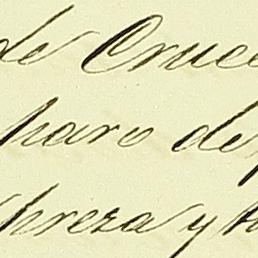 de Cruce
paro de
preza y